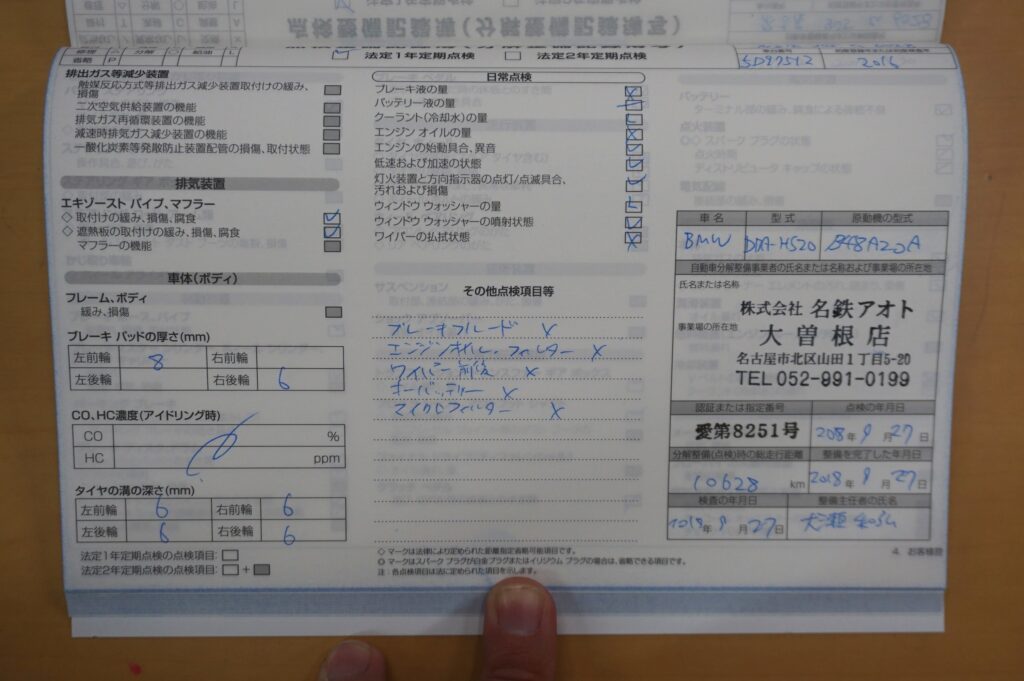 点検整備記録簿(分解整備記録簿写)
修理 △ 分解 ○ 給油 L
省略 P
法定1年定期点検
法定2年定期点検
2016
排出ガス等減少装置
触媒反応方式等排出ガス減少装置取付けの緩み、
損傷
二次空気供給装置の機能
排気ガス再循環装置の機能
減速時排気ガス減少装置の機能
一酸化炭素等発散防止装置配管の損傷、取付状態
排気装置
エキゾースト パイプ、マフラー
◇ 取付けの緩み、損傷、腐食
◇ 遮熱板の取付けの緩み、損傷、腐食
マフラーの機能
車体(ボディ)
フレーム、ボディ
緩み、損傷
ブレーキ パッドの厚さ(mm)
左前輪 8 右前輪
左後輪 右後輪 6
CO、HC濃度(アイドリング時)
CO %
HC ppm
タイヤの溝の深さ(mm)
左前輪 6 右前輪 6
左後輪 6 右後輪 6
法定1年定期点検の点検項目:
法定2年定期点検の点検項目: +
日常点検
ブレーキ液の量
バッテリー液の量
クーラント(冷却水)の量
エンジン オイルの量
エンジンの始動具合、異音
低速および加速の状態
灯火装置と方向指示器の点灯/点滅具合、
汚れおよび損傷
ウィンドウ ウォッシャーの量
ウィンドウ ウォッシャーの噴射状態
ワイパーの払拭状態
その他点検項目等
ブレーキフルード ×
エンジンオイル・フィルター ×
ワイパー前後 ×
キーバッテリー ×
マイクロフィルター ×
◇ マークは法律により定められた距離指定省略可能項目です。
◎ マークはスパーク プラグが白金プラグまたはイリジウム プラグの場合は、省略できる項目です。
注：各点検項目は法に定められた項目を示します。
車 名 型 式 原動機の型式
BMW DBA-HS20 B48A20A
自動車分解整備事業者の氏名または名称および事業場の所在地
氏名または名称
株式会社 名鉄アオト
事業場の所在地
大曽根店
名古屋市北区山田1丁目5-20
TEL 052-991-0199
認証または指定番号 点検の年月日
愛第8251号 2018年 9月 27日
分解整備(点検)時の総走行距離 整備を完了した年月日
10628 km 2018年 9月 27日
検査の年月日 整備主任者の氏名
2018年 9月 27日
4. お客様控